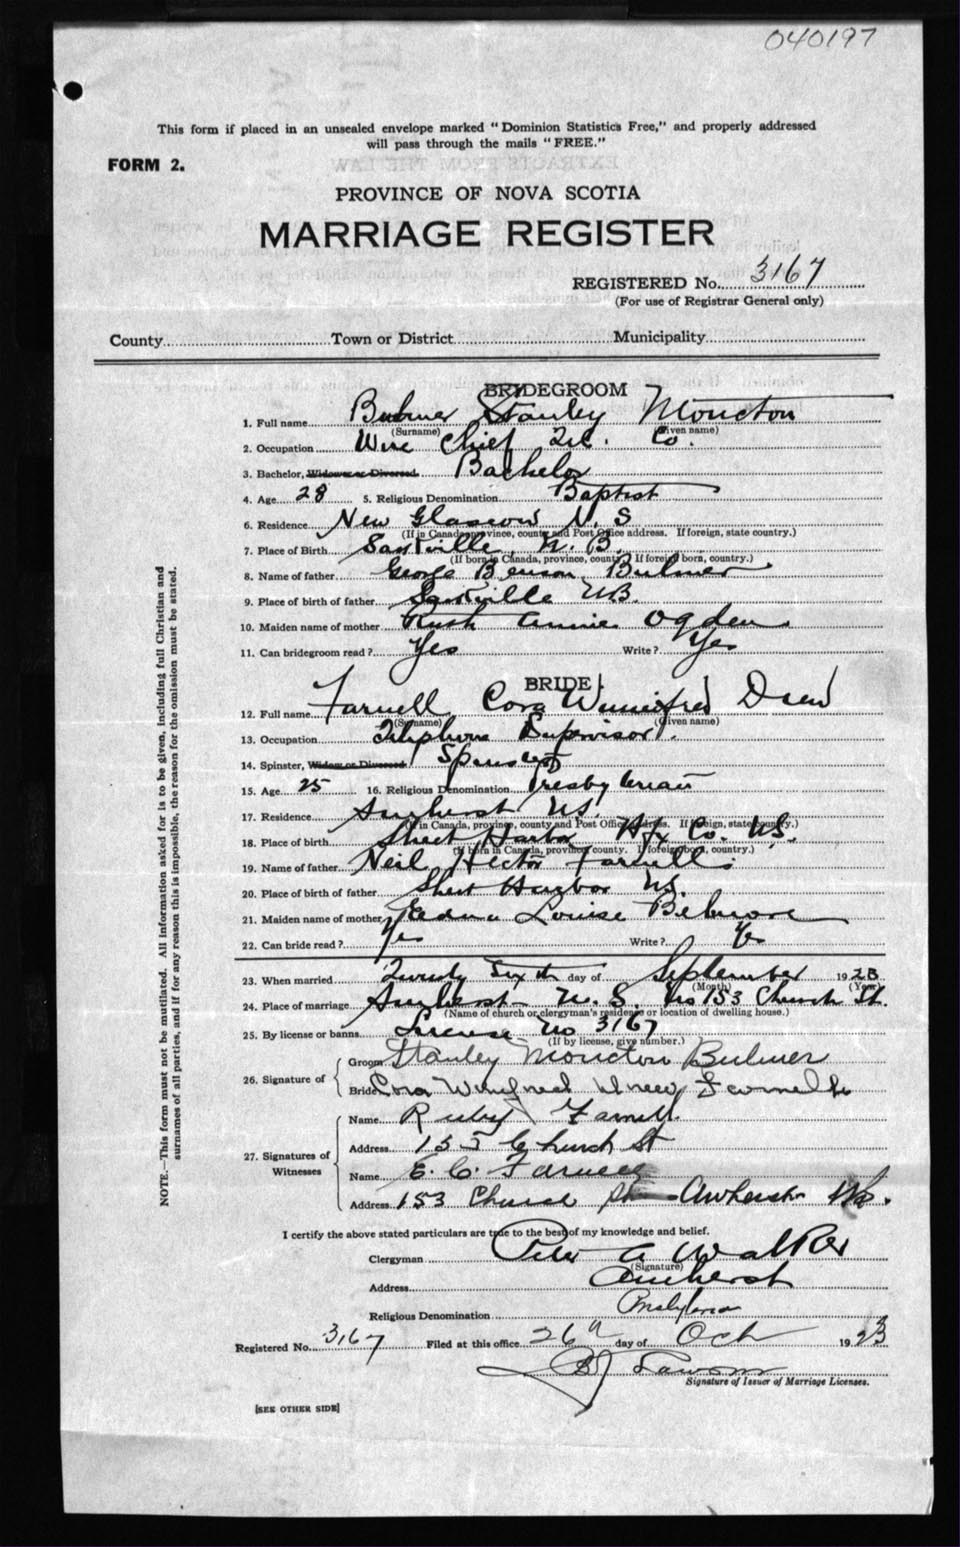 040197
This form if placed in an unsealed envelope marked "Dominion Statistics Free," and properly addressed
will pass through the mails "FREE."
FORM 2.
PROVINCE OF NOVA SCOTIA
MARRIAGE REGISTER
REGISTERED No. 3167
(For use of Registrar General only)
County Town or District Municipality
BRIDEGROOM
1. Full name Bulmer Stanley Moncton
(Surname) (Given name)
2. Occupation Wire Chief Tel. Co.
3. Bachelor, Widower or Divorced Bachelor
4. Age 28 5. Religious Denomination Baptist
6. Residence New Glasgow N. S
(If in Canada, province, county and Post Office address. If foreign, state country.)
7. Place of Birth Sackville N. B.
(If born in Canada, province, county. If foreign born, country.)
8. Name of father George Benson Bulmer
9. Place of birth of father Sackville NB.
10. Maiden name of mother Ruth Annie Ogden
11. Can bridegroom read? Yes Write? Yes
BRIDE
12. Full name Farnell Cora Winnifred Drew
(Surname) (Given name)
13. Occupation Telephone Supervisor.
14. Spinster, Widow or Divorced Spinster
15. Age 25 16. Religious Denomination Presbyterian
17. Residence Amherst NS.
(If in Canada, province, county and Post Office address. If foreign, state country.)
18. Place of birth Sheet Harbor Hfx Co. NS.
(If born in Canada, province, county. If foreign born, country.)
19. Name of father Neil Hector Farnell.
20. Place of birth of father Sheet Harbor NS.
21. Maiden name of mother Edna Louise Belmore
22. Can bride read? Yes Write? Yes
23. When married Twenty Sixth day of September 1923
(Month) (Year)
24. Place of marriage Amherst N. S. No 153 Church St.
(Name of church or clergyman's residence or location of dwelling house.)
25. By license or banns License No 3167
(If by license, give number.)
26. Signature of
Groom Stanley Moncton Bulmer
Bride Cora Winifred Drew Farnell
27. Signatures of
Witnesses
Name Ruby Farnell
Address 155 Church St
Name E. C. Farnell
Address 153 Church St Amherst NS.
I certify the above stated particulars are true to the best of my knowledge and belief.
Clergyman Peter A Walker
(Signature)
Address Amherst
Religious Denomination Presbyterian
Registered No. 3167 Filed at this office 26th day of Oct 1923
Lawson
Signature of Issuer of Marriage Licenses.
[SEE OTHER SIDE]
NOTE.—This form must not be mutilated. All information asked for is to be given, including full Christian and
surnames of all parties, and if for any reason this is impossible, the reason for the omission must be stated.